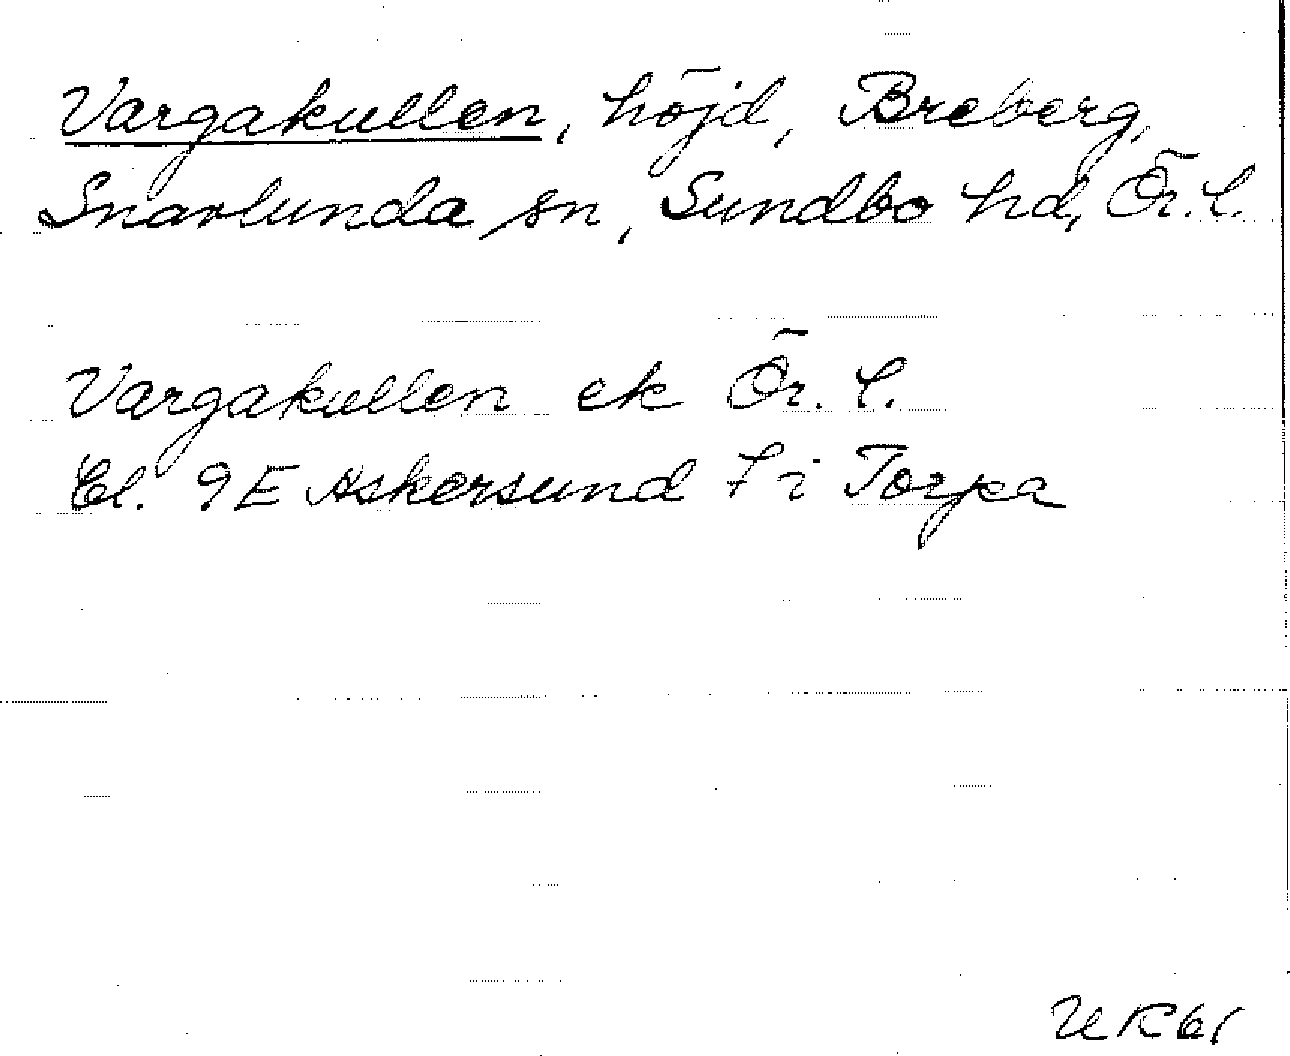 Vargakullen, höjd, Breberg,
Snavlunda sn, Sundbo hd, Ör. l.
Vargakullen ek Ör. l.
Bl. 9E Askersund 7 i Torpa